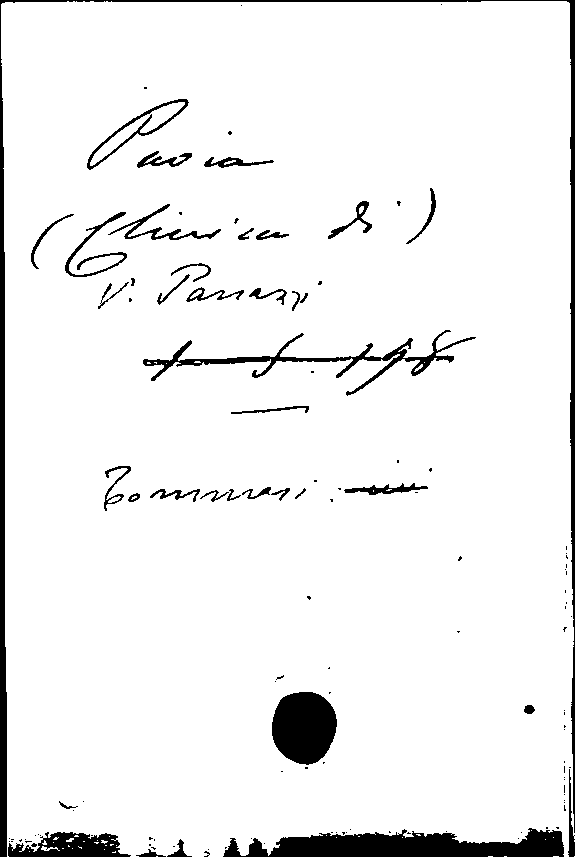 Pavia
(Clinica di)
V. Panazzi
Tommasi